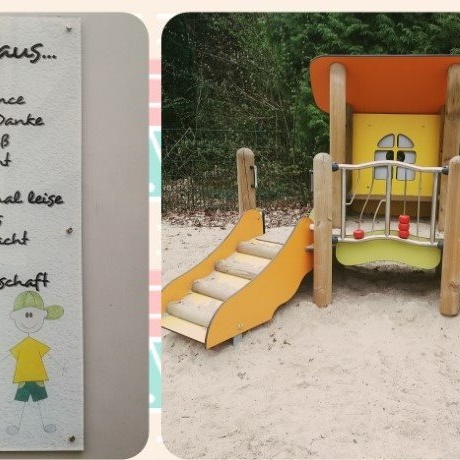 aus...
nce
Danke
ß
nt
nal leise
s
acht
schaft